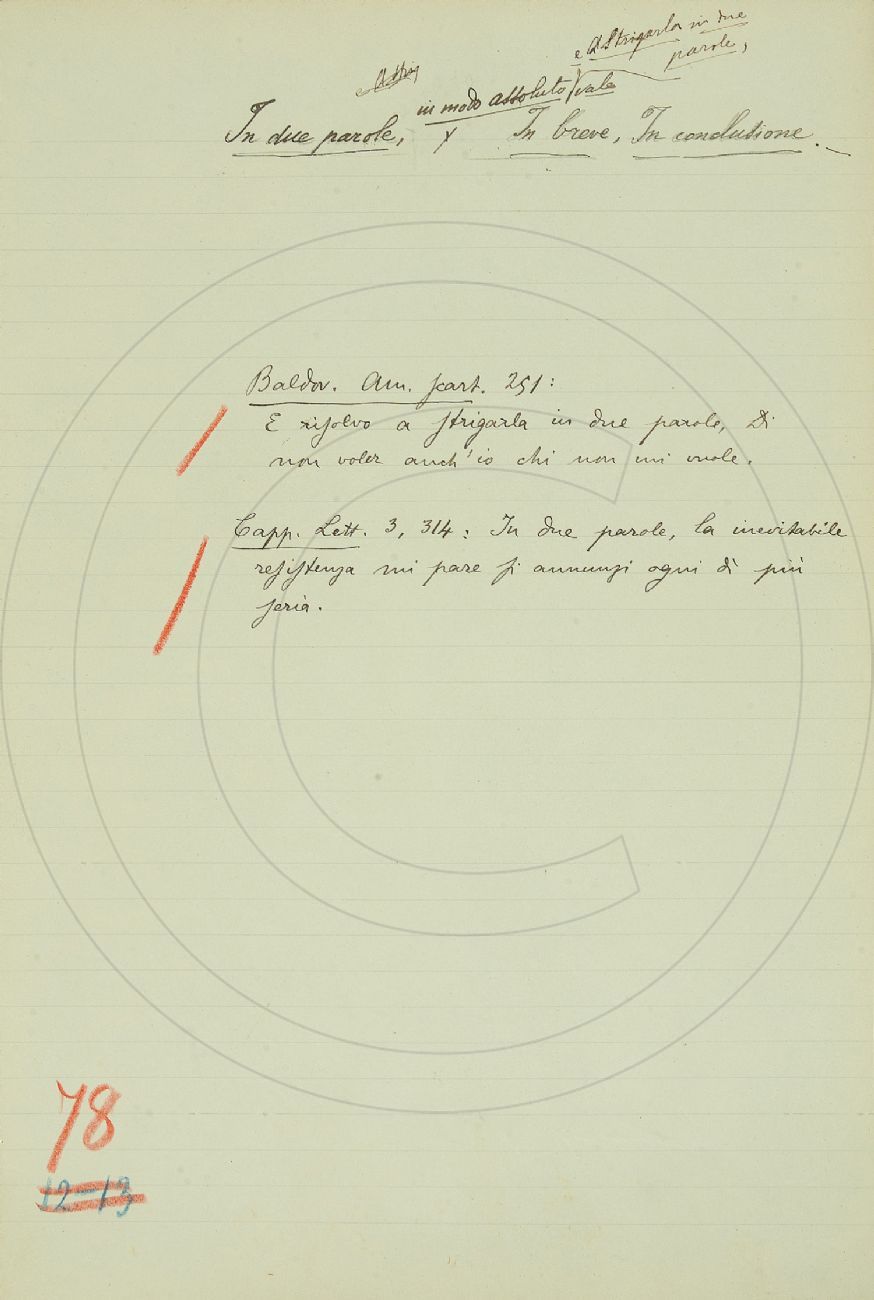 e A strigarla in due
parole,
in modo assoluto, vale
In due parole, In breve, In conclusione.
Baldov. Am. scart. 251:
E risolvo a strigarla in due parole, Di
non voler anch'io chi non mi vuole.
Capp. Lett. 3, 314: In due parole, la inevitabile
resistenza mi pare si annunzi ogni dì più
seria.
78
12-13